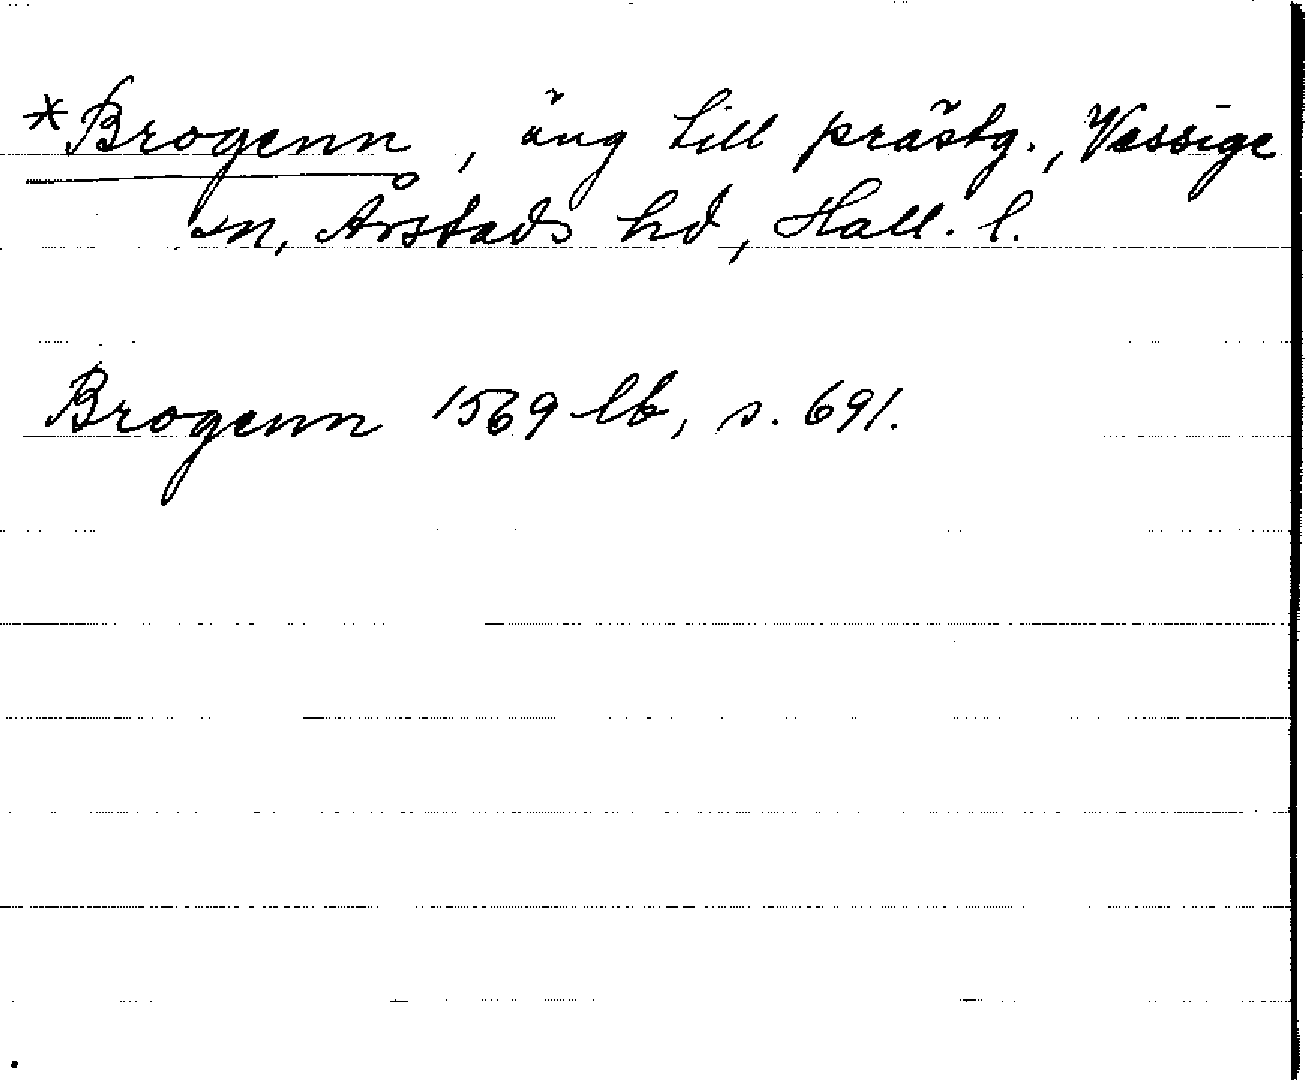 *Brogenn, äng till prästg., Vessige
sn, Årstads hd, Hall. l.
Brogenn 1569 lb, s. 691.